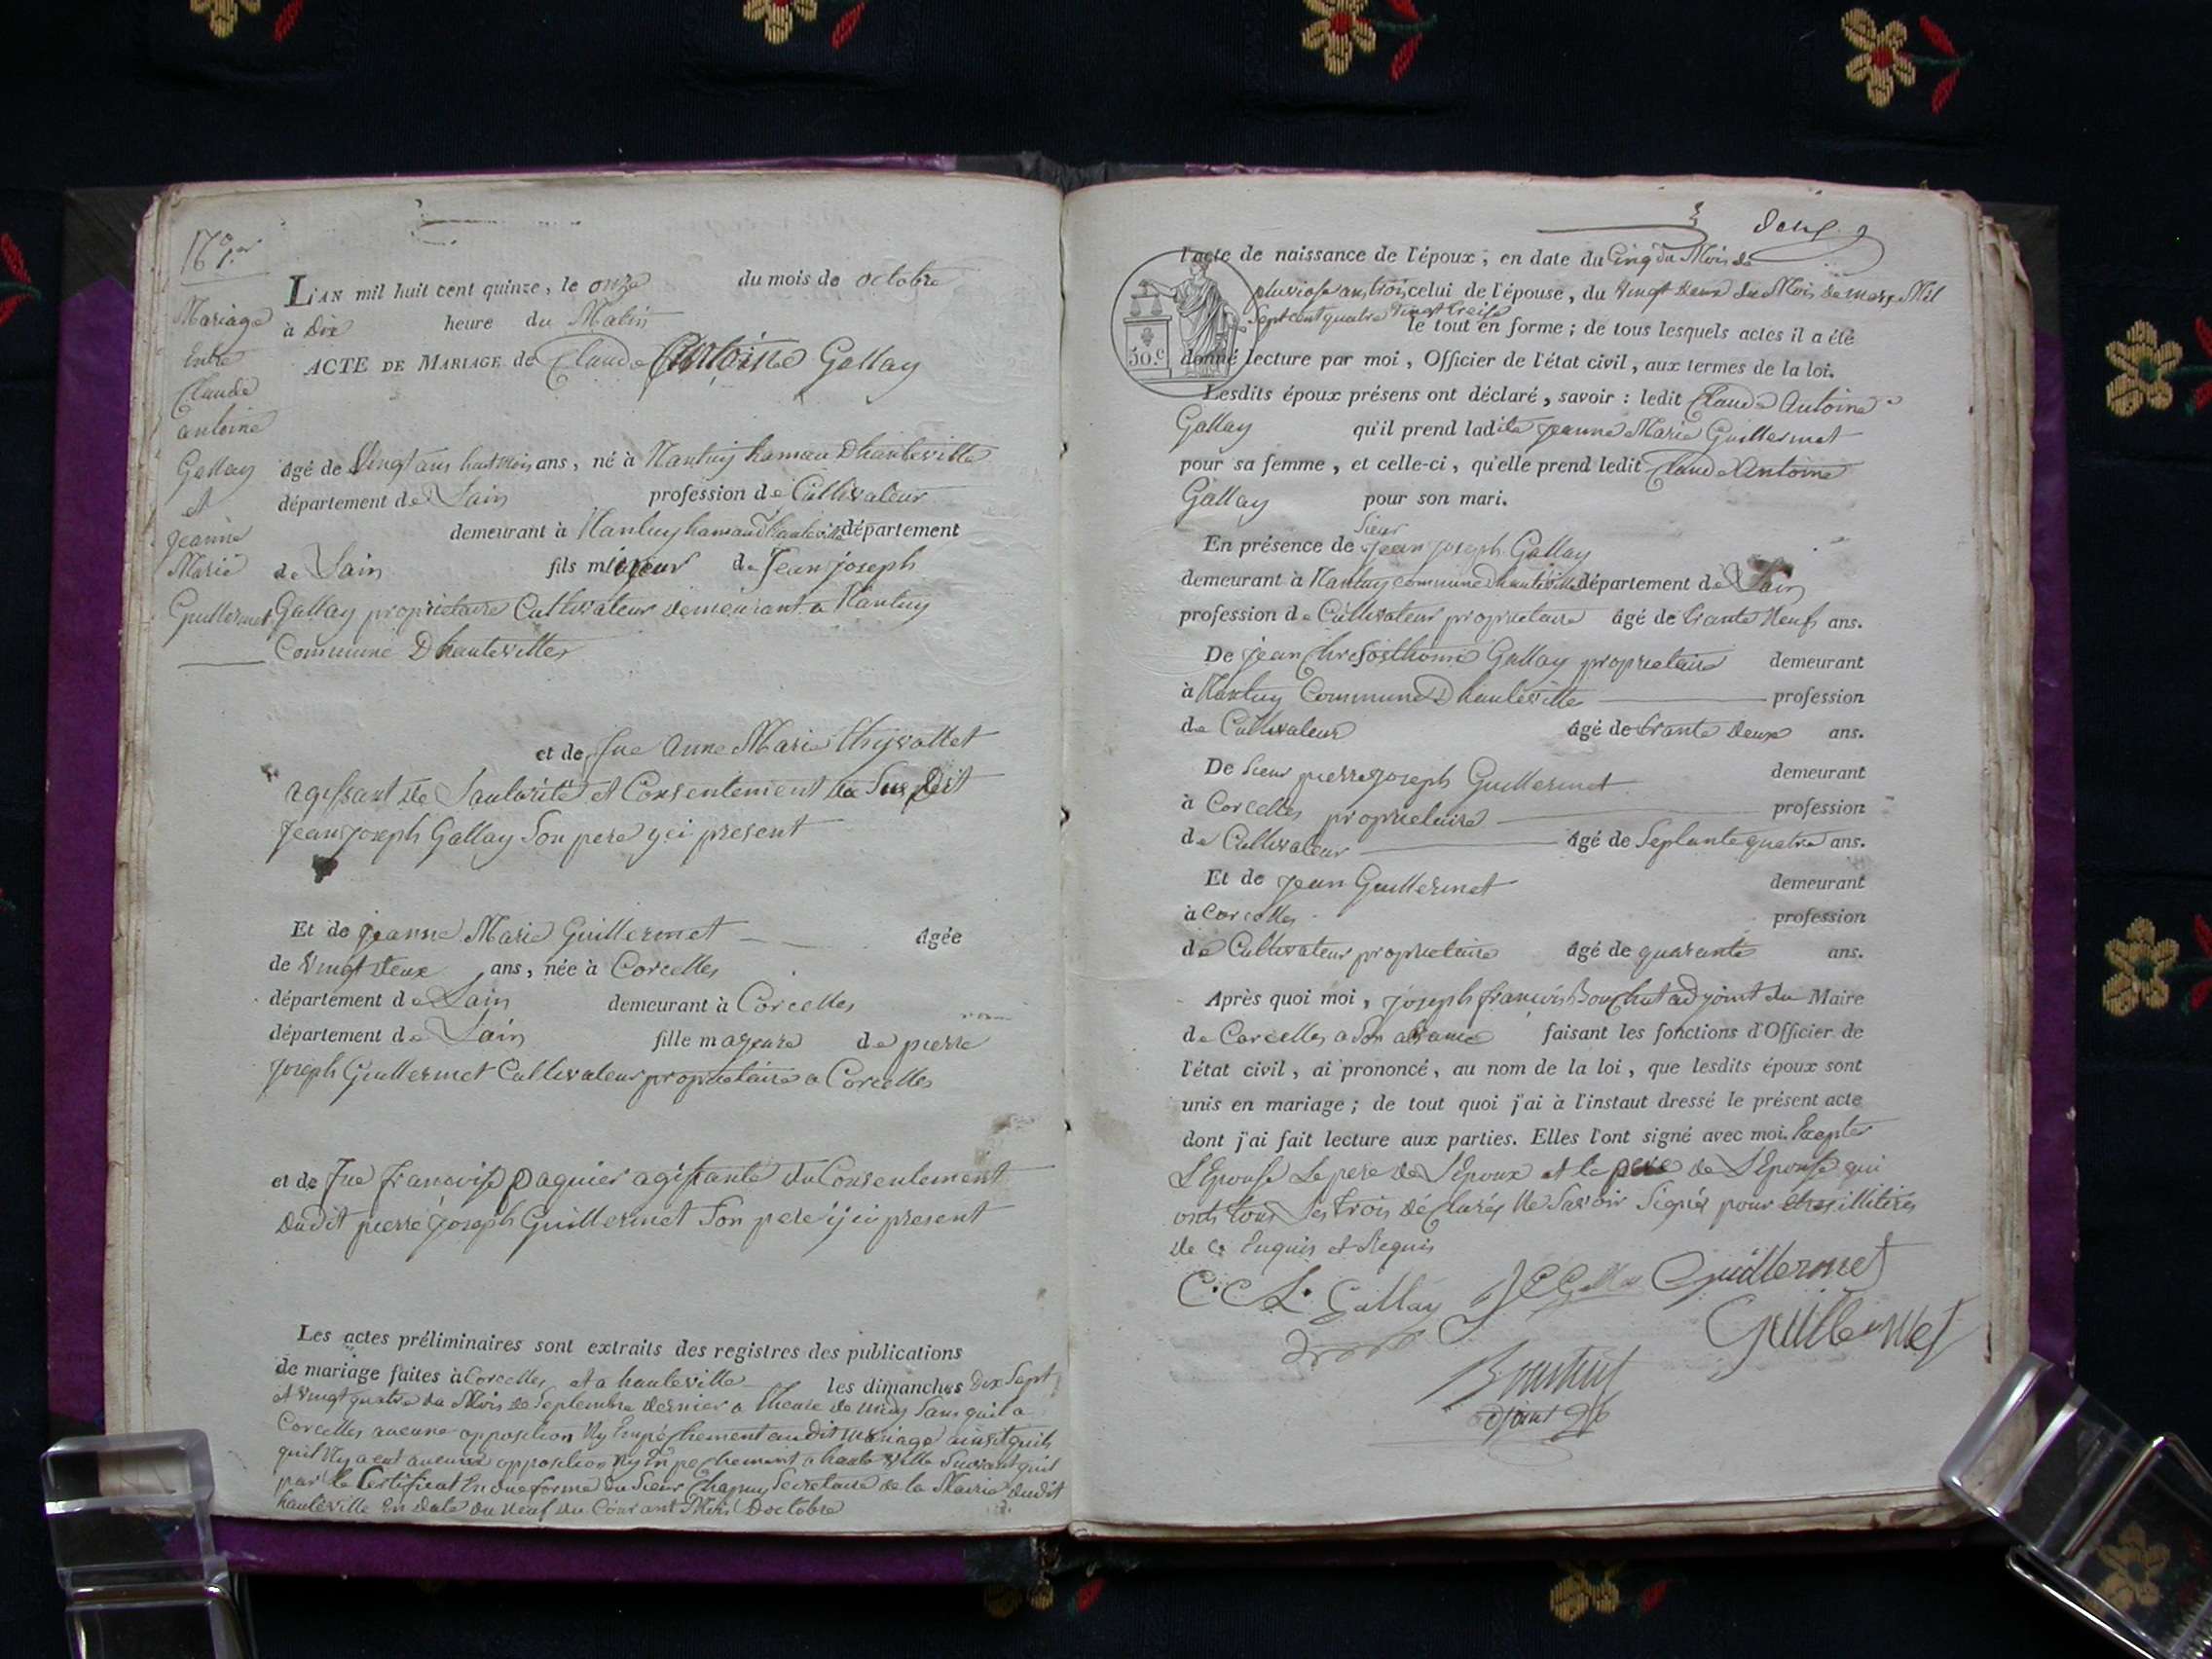 Mariage
Entre
Claude
antoine
Gallay
et
jeanne
Marie
Guillermet
L'AN mil huit cent quinze, le onze du mois de octobre
à Dix heure du Matin
ACTE DE MARIAGE de Claude Antoine Gallay
âgé de Vingt ans huit Mois ans, né à Nantuy hamau Dhauteville
département de Lain profession de Cultivateur
demeurant à Nantuy hamau Dhauteville département
de Lain fils mineur de Jean joseph
Gallay proprietaire Cultivateur demeurant a Nantuy
Commune Dhauteville
et de fue anne Marie
agissant de Lautorité et Consentement du Sus Dit
Jean joseph Gallay Son pere yci present
Et de jeanne Marie Guillermet âgée
de Vingt deux ans, née à Corcelles
département de Lain demeurant à Corcelles
département de Lain fille mageure de pierre
joseph Guillermet Cultivateur proprietaire a Corcelles
et de fue francoise paquier agissante du Consentement
Dudit pierre joseph Guillermet Son pere yci present
Les actes préliminaires sont extraits des registres des publications
de mariage faites à Corcelles et a hauteville les dimanches Dix Sept
et Vingt quatre du Mois de Septembre dernier a lheure de midy Sans quil a
Corcelles aucune opposition Ny Empéchement audit Mariage
quil Ny a eut aucune opposition Ny Enpechement a haute ville Suivant quil
par le Certificat En due forme du Sieur Chapuy Secretaire de la Mairie dudit
hauteville En Date du Neuf du Courant Mois Doctobre
Deux
l'acte de naissance de l'époux; en date du Cinq du Mois de
pluviose an trois celui de l'épouse, du Vingt Deux du Mois de mars Mil
Sept cent quatre Vingt treise le tout en forme; de tous lesquels actes il a été
50.c donné lecture par moi, Officier de l'état civil, aux termes de la loi.
Lesdits époux présens ont déclaré, savoir: ledit Claude Antoine
Gallay qu'il prend ladite jeanne Marie Guillermet
pour sa femme, et celle-ci, qu'elle prend ledit Claude Antoine
Gallay pour son mari.
Sieur
En présence de Jean joseph Gallay
demeurant à Nantuy commune Dhauteville département de Lain
profession de Cultivateur proprietaire âgé de trante Neuf ans.
De jean Gallay proprietaire demeurant
à Nantuy Commune Dhauteville profession
de Cultivateur âgé de trante deux ans.
De Sieur pierre joseph Guillermet demeurant
à Corcelles proprietaire profession
de Cultivateur âgé de Septante quatre ans.
Et de jean Guillermet demeurant
à Corcelles profession
de Cultivateur proprietaire âgé de quarante ans.
Après quoi moi, joseph françois Bouchut adjoint du Maire
de Corcelles a Son absance faisant les fonctions d'Officier de
l'état civil, ai prononcé, au nom de la loi, que lesdits époux sont
unis en mariage; de tout quoi j'ai à l'instaut dressé le présent acte
dont j'ai fait lecture aux parties. Elles l'ont signé avec moi. Excepter
L'Epouse Le pere de L'Epoux et le pere de L'Epouse qui
onts tous Les trois déclarés Ne Savoir Signér pour etres illitéres
de ce Enquis et Requis
Gallay Guillermet
Guillermet
Bouchut
adjoint